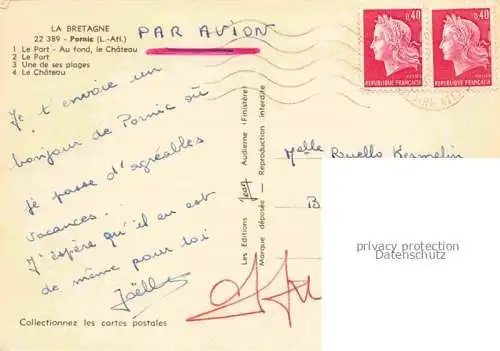 LA BRETAGNE
22 389 - Pornic (L.-Atl.)
1 Le Port - Au fond, le Château
2 Le Port
3 Une de ses plages
4 Le Château
PAR AVION
Je t'envoie un
bonjour de Pornic où
je passe d'agréables
vacances..
J'espère qu'il en est
de même pour toi
Joëlle
Collectionnez les cartes postales
Les Editions Jean Audierne (Finistère)
Marque déposée - Reproduction interdite
0,40
REPUBLIQUE FRANÇAISE
0,40
REPUBLIQUE FRANÇAISE
Melle Ruello Kermelin
B
privacy protection
Datenschutz